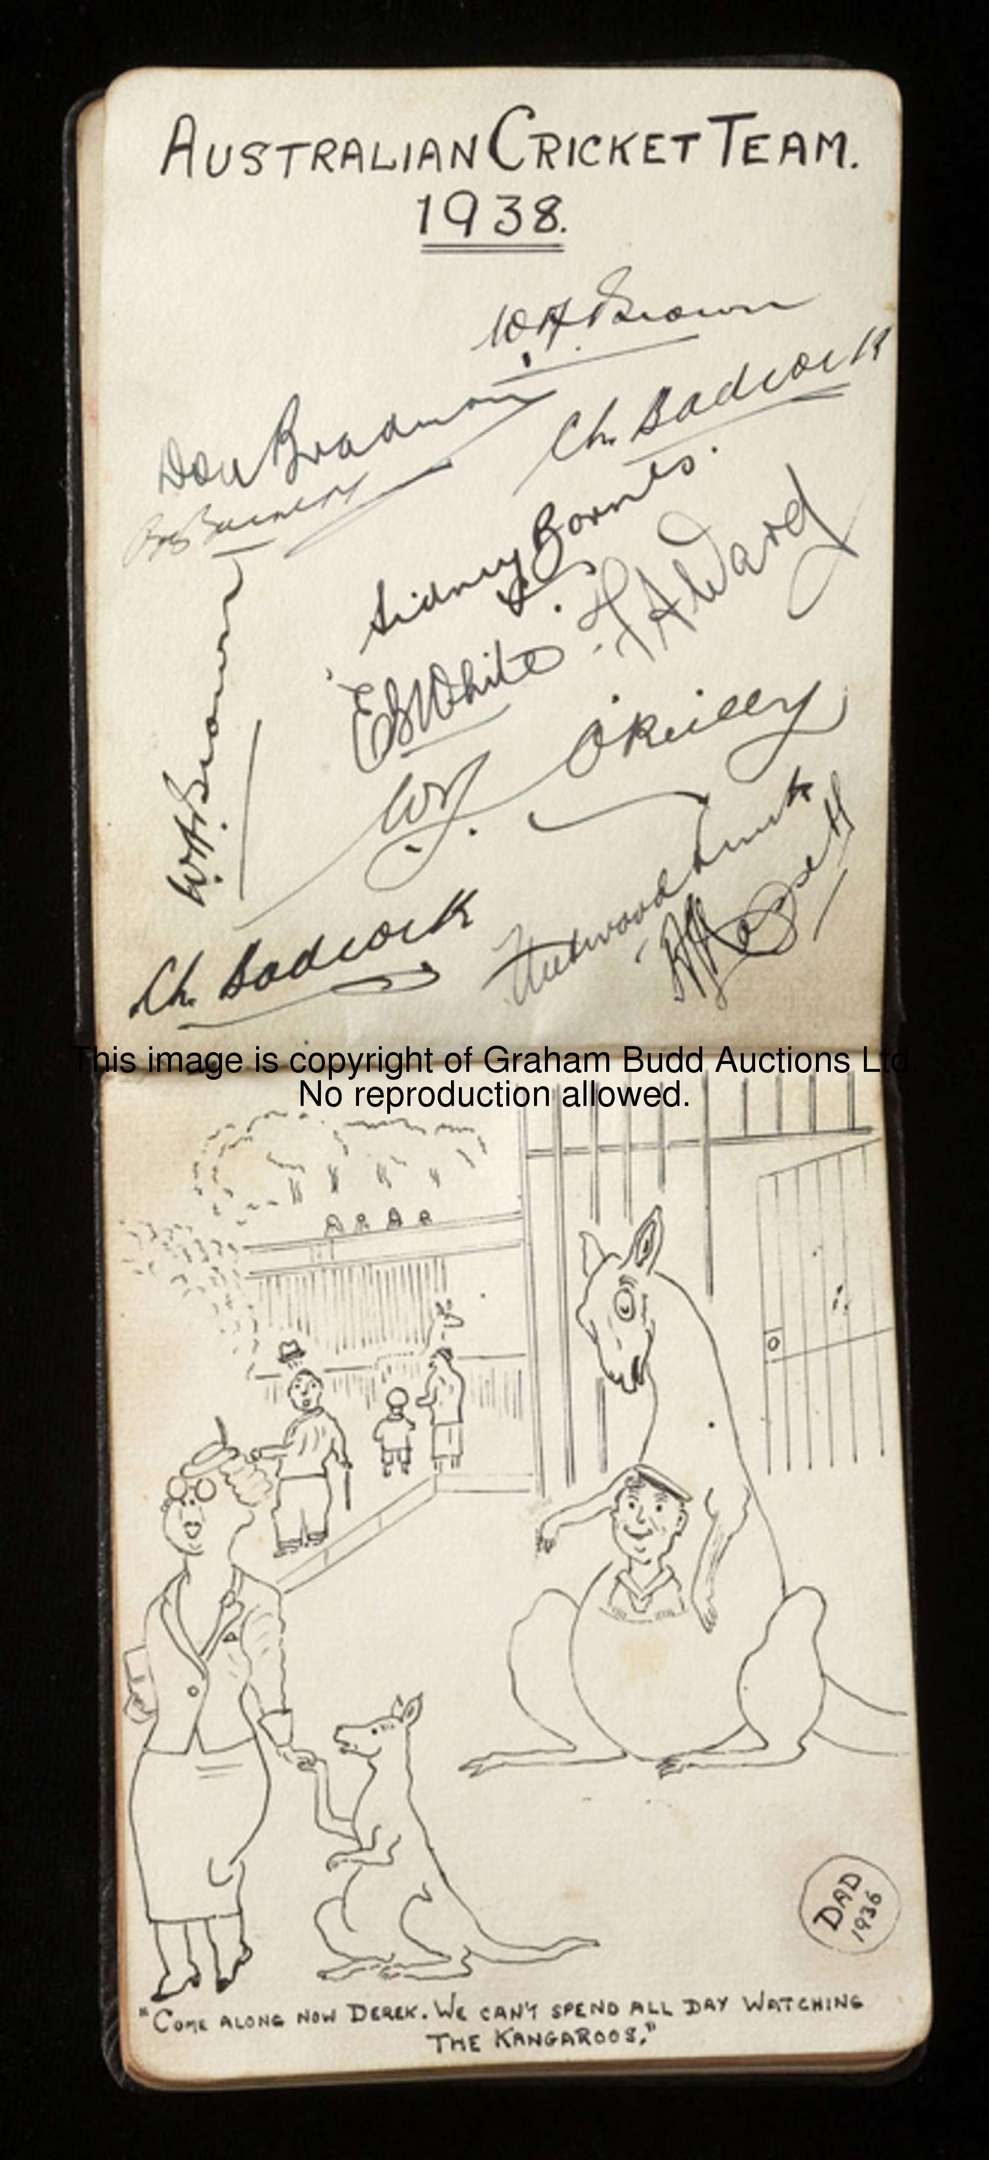 AUSTRALIAN CRICKET TEAM.
1938.
W A Brown
Don Bradman
Ch. Badcock
Sidney Barnes
F A Ward
E S White
W A Brown
W J O'Reilly
Fleetwood Smith
A L Hassett
Ch. Badcock
This image is copyright of Graham Budd Auctions Ltd.
No reproduction allowed.
DAD
1936
"COME ALONG NOW DEREK. WE CAN'T SPEND ALL DAY WATCHING
THE KANGAROOS."